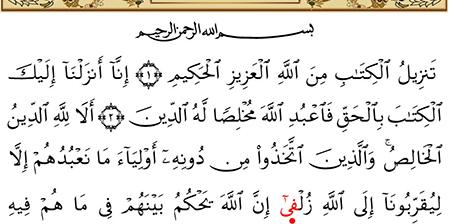 بسم الله الرحمن الرحيم
تَنزِيلُ الْكِتَابِ مِنَ اللَّهِ الْعَزِيزِ الْحَكِيمِ ﴿١﴾ إِنَّا أَنزَلْنَا إِلَيْكَ
الْكِتَابَ بِالْحَقِّ فَاعْبُدِ اللَّهَ مُخْلِصًا لَّهُ الدِّينَ ﴿٢﴾ أَلَا لِلَّهِ الدِّينُ
الْخَالِصُ ۚ وَالَّذِينَ اتَّخَذُوا مِن دُونِهِ أَوْلِيَاءَ مَا نَعْبُدُهُمْ إِلَّا
لِيُقَرِّبُونَا إِلَى اللَّهِ زُلْفَىٰ إِنَّ اللَّهَ يَحْكُمُ بَيْنَهُمْ فِي مَا هُمْ فِيهِ